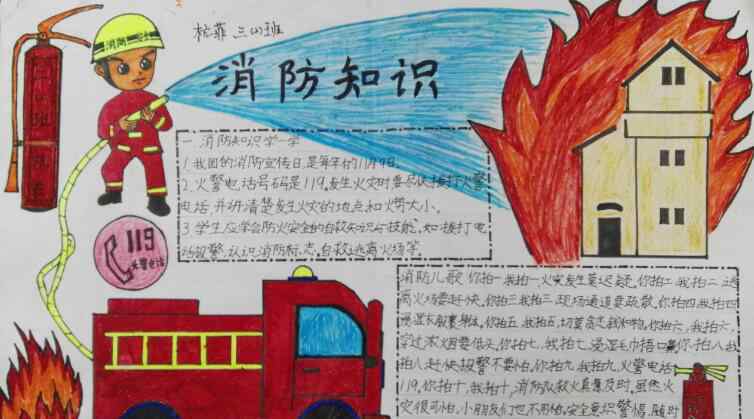 消防
三(4)班
消防知识
一 消防知识学一学
1.我国的消防宣传日,是每年的11月9日.
2.火警电话号码是119,发生火灾时要尽快拨打火警
电话,并讲清楚发生火灾的地点和火势大小.
3.学生应学会防火安全的自救知识与技能,如:拨打电
话报警,认识消防标志,自救逃离火场等.
119
火警电话
消防儿歌 你拍一,我拍一,火灾发生莫迟疑,你拍二,我拍二,逃
离火场要赶快,你拍三我拍三,现场通道要疏散,你拍四我拍四
身体,你拍五,我拍五,切莫贪恋钱和物,你拍六,我拍六,
穿过浓烟要低头,你拍七,我拍七,浸湿毛巾捂口鼻,你拍八我
拍八,赶快报警不要怕,你拍九,我拍九,火警电话
119,你拍十,我拍十,消防队救火真及时,虽然火
灾很可怕,小朋友们也不用怕,安全意识警惕,随时